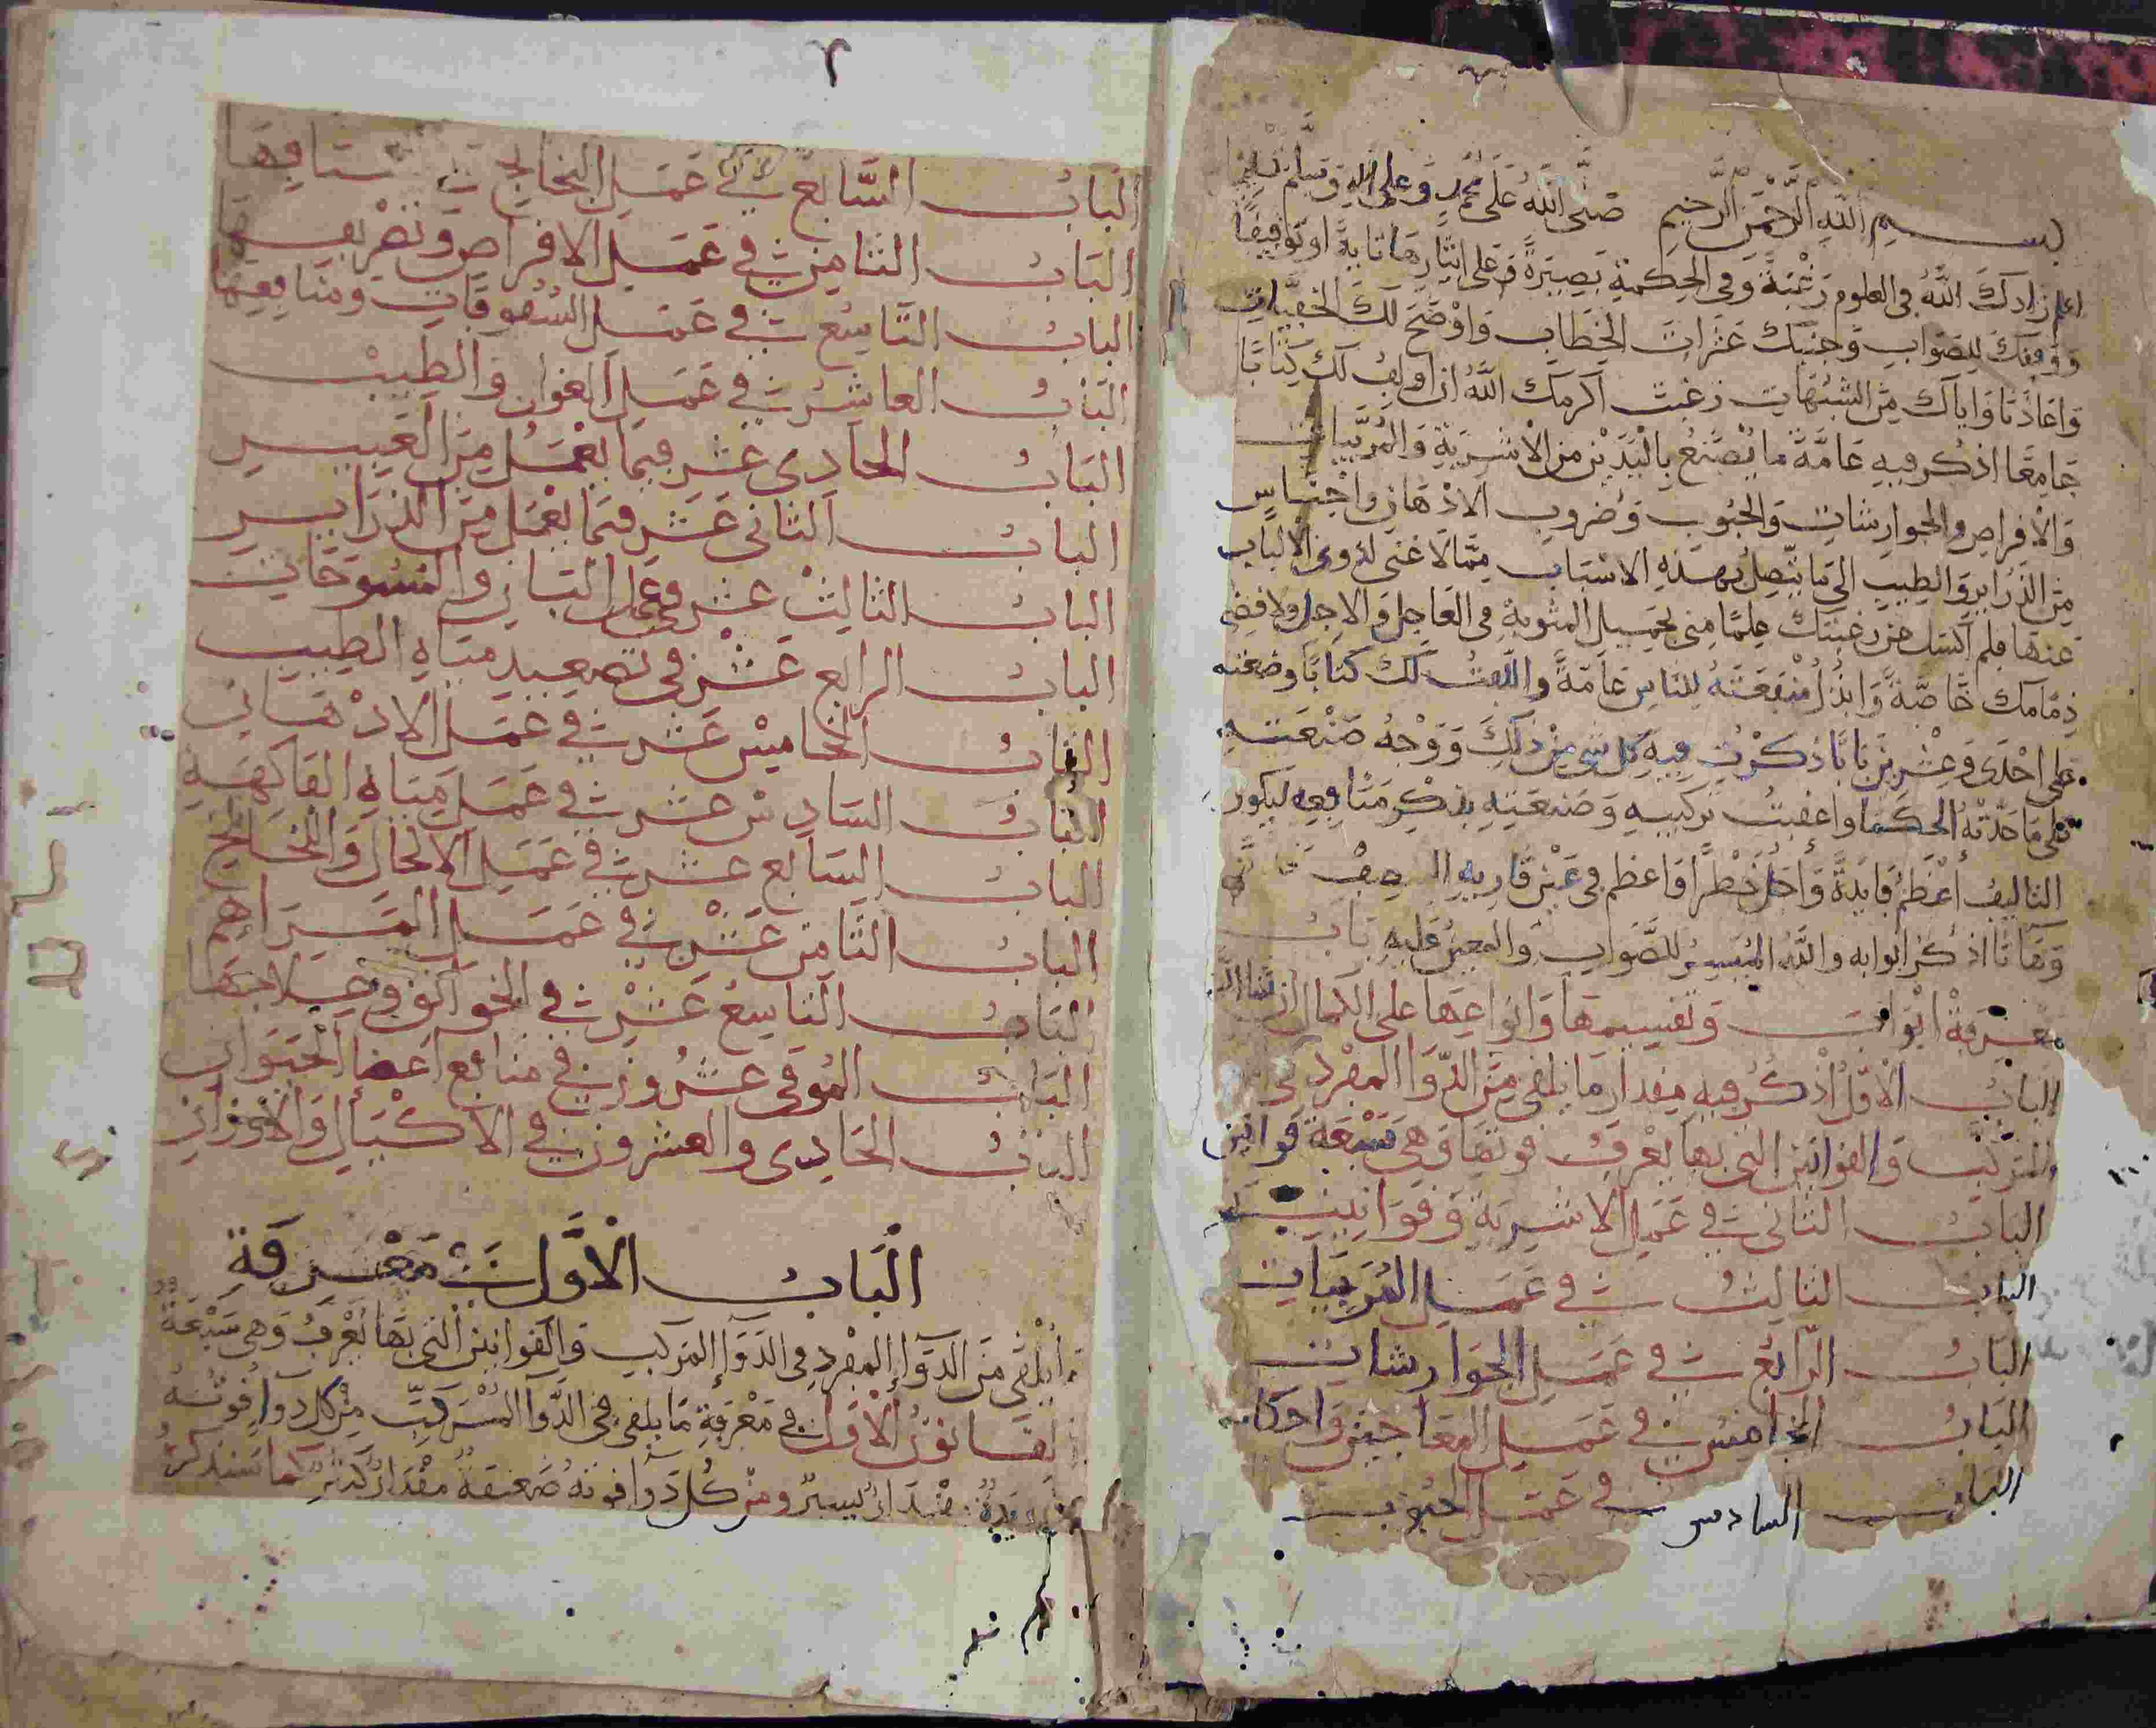 بسم الله الرحمن الرحيم صلى الله على محمد وعلى اله وسلم تسليما
اعلم زادك الله في العلوم رغبة وفي الحكمة بصيرة وعلى ايثارها نابة او توفيقا
ووفقك للصواب وجنبك عثرات الخطاب واوضح لك الخفيات
واعاذنا واياك من الشبهات رغبت اكرمك الله ان اولف لك كتابا
جامعا اذكر فيه عامة ما يصنع باليدين من الاشربة والمربيات
والاقراص والجوارشات والحبوب وضروب الادهان واجناس
من الذراير والطيب الى ما يتصل بهذه الاسباب مما لا غنى لذوي الالباب
عنها فلم اكسل عن رغبتك علما مني بجميل المثوبة في العاجل والاجل ولاقضي
ذمامك خاصة وابذل منفعته للناس عامة والفت لك كتابا وضعته
على احدى وعشرين بابا ذكرت فيه كل شي من ذلك ووجه صنعته
على ما حدته الحكما واعقبت تركيبه وصنعته بذكر منافعه ليكون
التاليف اعظم فايدة واجل خطرا واعظم في عين قاريه
وهانا اذكر ابوابه والله الميسر للصواب والمعين عليه باب
معرفة ابواب وتقسيمها وانواعها على الكمال ان شا الله
الباب الاول اذكر فيه مقدار ما يلقى من الدوا المفرد في
المركب والقوانين التي بها يعرف قوتها وهي سبعة قوانين
الباب الثاني في عمل الاشربة وقوانينه
الباب الثالث في عمل المربيات
الباب الرابع في عمل الجوارشات
الباب الخامس في عمل المعاجين واحكامه
الباب السادس في عمل الحبوب
٢
الباب السابع في عمل النخالخ ومنافعها
الباب الثامن في عمل الاقراص وتصريفها
الباب التاسع في عمل السفوفات ومنافعها
الباب العاشر في عمل الغوالي والطيب
الباب الحادي عشر فيما يعمل من العبير
الباب الثاني عشر فيما يعمل من الذراير
الباب الثالث عشر في عمل البان والمسوحات
الباب الرابع عشر في تصعيد مياه الطيب
الباب الخامس عشر في عمل الادهان
الباب السادس عشر في عمل مياه الفاكهة
الباب السابع عشر في عمل الاكحال واللخالخ
الباب الثامن عشر في عمل المراهم
الباب التاسع عشر في الخوانق وعلاجها
الباب الموفي عشرون في منافع اعضا الحيوان
الباب الحادي والعشرون في الاكيال والاوزان
الباب الاول في معرفة
ما يلقى من الدوا المفرد في الدوا المركب والقوانين التي بها يعرف وهي سبعة
القانون الاول في معرفة ما يلقى في الدوا المركب من كل دوا قوته
شديدة مقدار يسير ومن كل دوا قوته ضعيفة مقدار كثير كما سنذكره